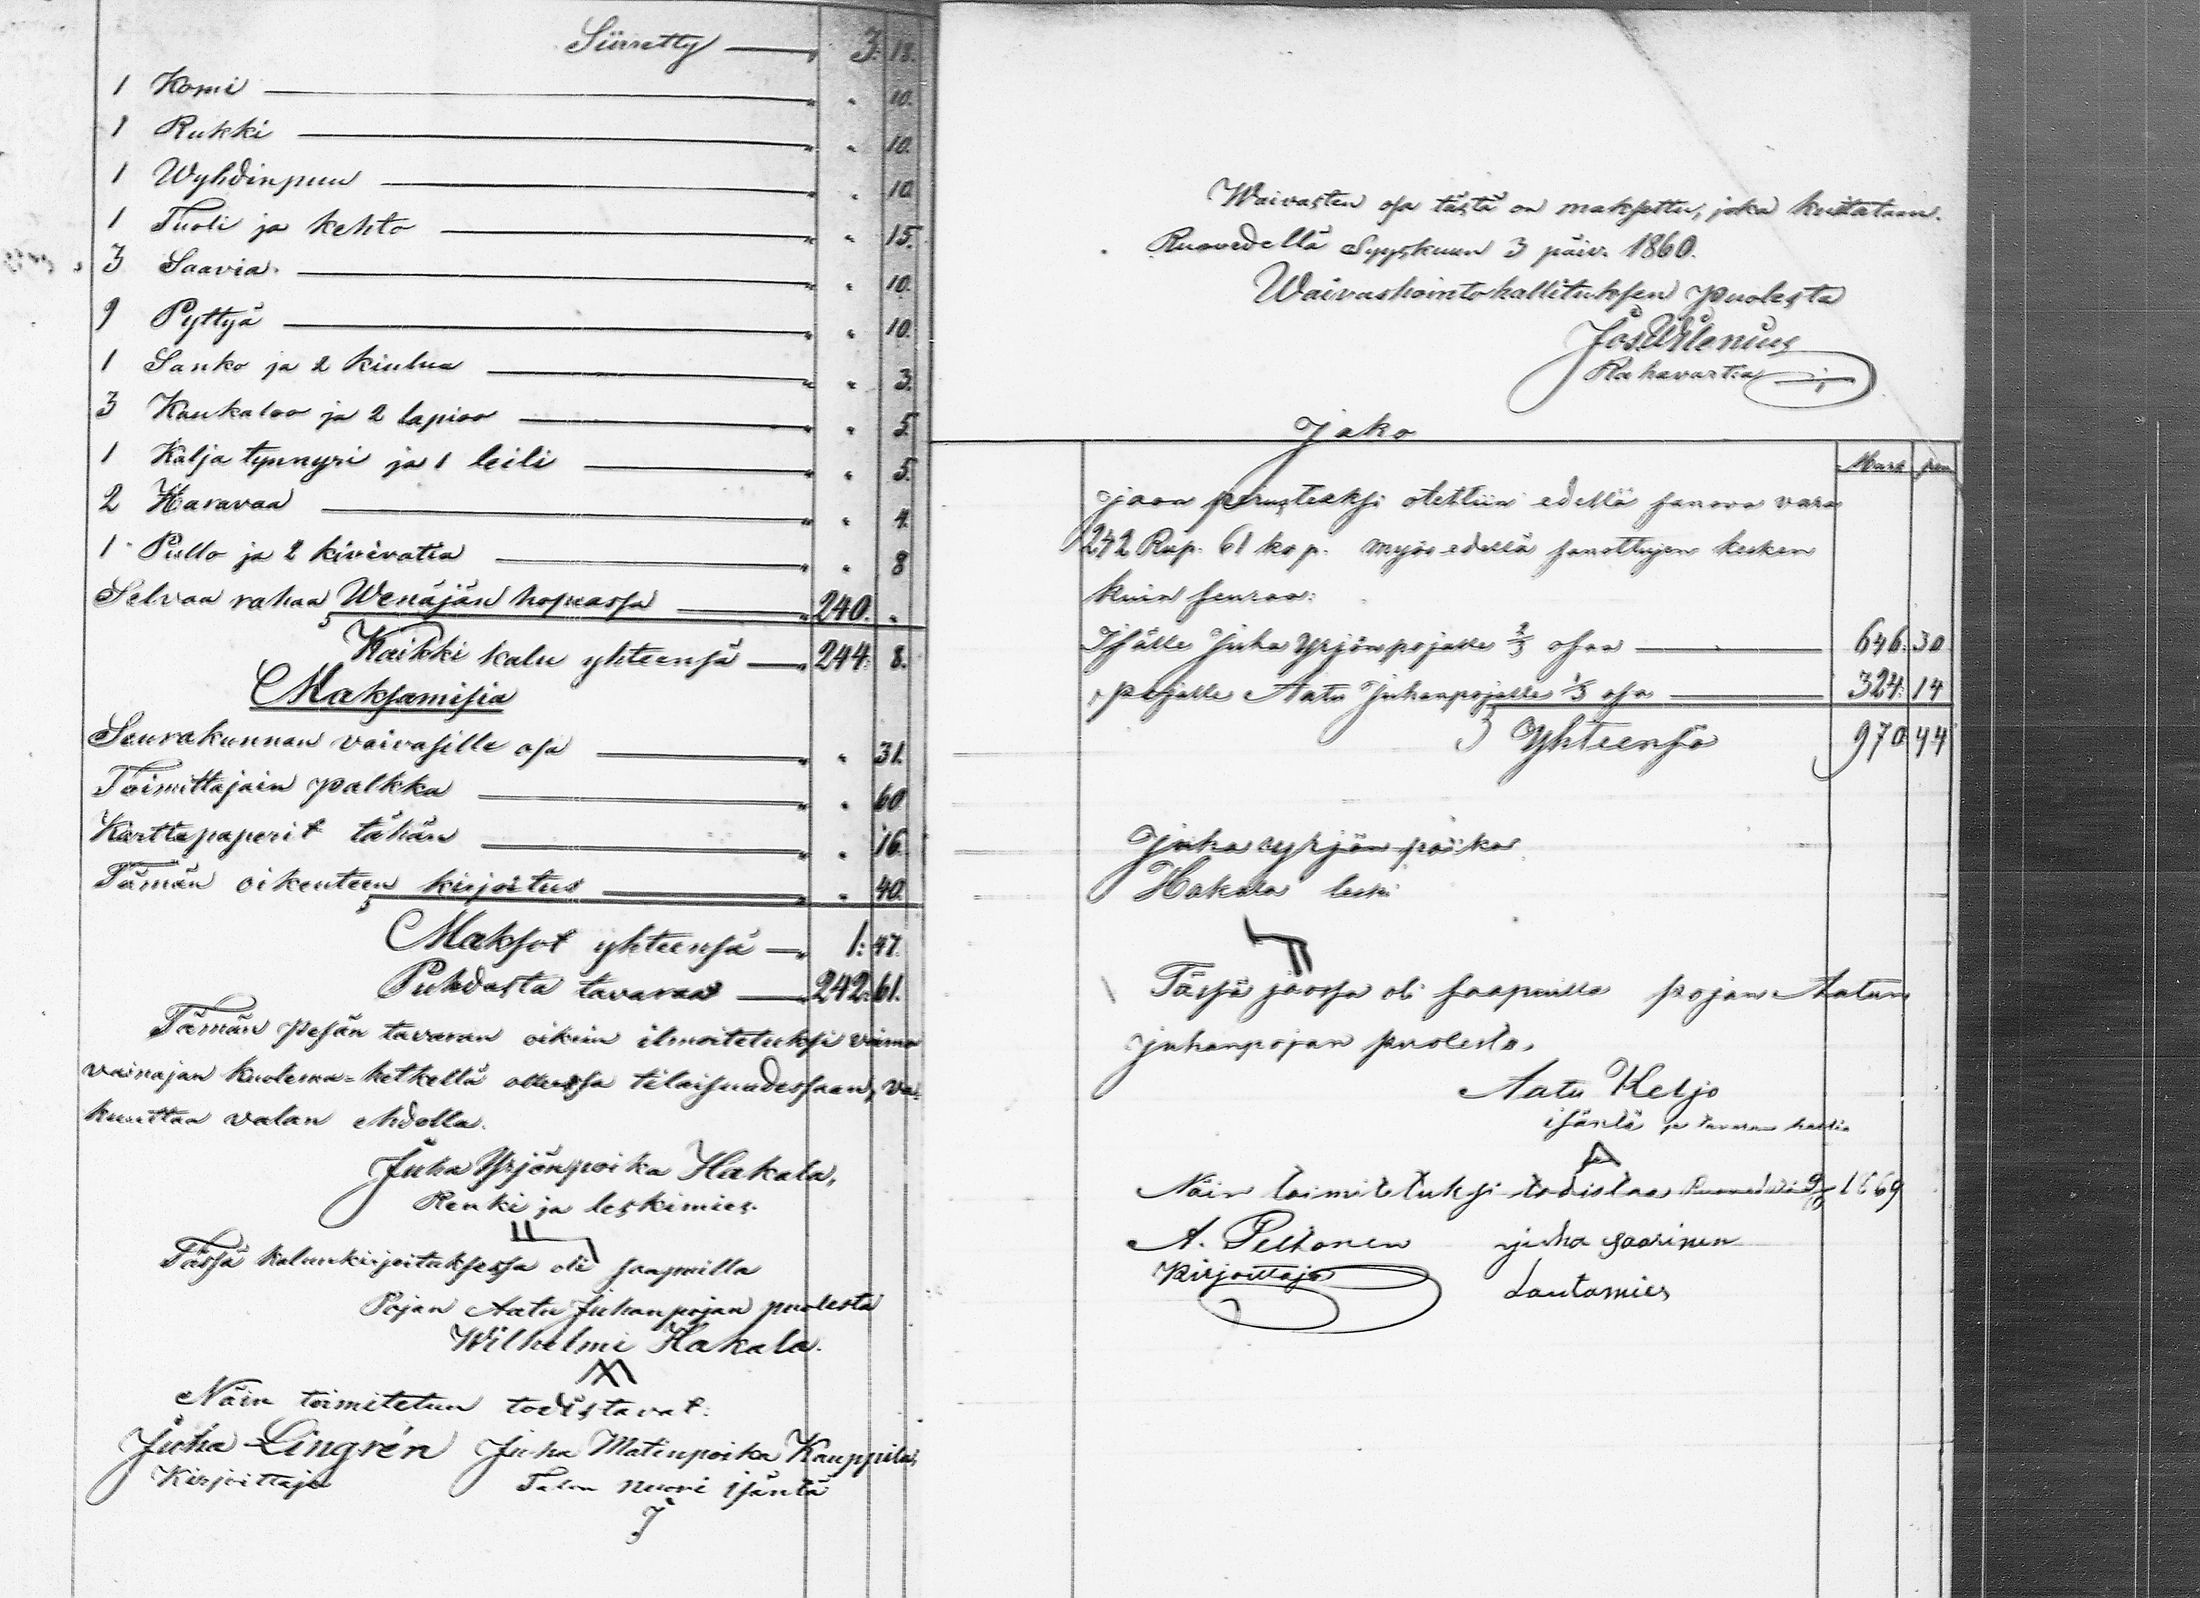 Siirretty — " 3: 18.
1 Komi — " " 10.
1 Rukki — " " 10.
1 Wyhdinpuu — " " 10
1 Tuoli ja kehto — " " 15.
3 Saavia. — " " 10.
9 Pyttyä — " " 10.
1 Sanko ja 2 kiulua — " " 3.
3 Kaukaloo ja 2 lapioo — " " 5.
1 Kalja tynnyri ja 1 leili — " " 5.
2 Haravaa — " " 4.
1 Pullo ja 2 kivivatia — " " 8
Selvaa rahaa Wenäjän hopeassa — " 240. "
Kaikki kalu yhteensä — " 244: 8.
Maksamisia
Seurakunnan vaivasille osa — " " 31.
Toimittajain palkka — " " 60
Karttapaperit tähän — " " 16.
Tämän oikeuteen kirjoitus — " " 40.
Maksot yhteensä — " 1: 47.
Puhdasta tavaraa — 242: 61.
Tämän pesän tavaran oikein ilmoitetuksi
vainajan kuolema-hetkellä ollessa tilaisuudessaan, va-
kuuttaa valan ehdolla.
Juha Yrjönpoika Hakala,
Renki ja leskimies.
Tässä kalunkirjoituksessa oli saapuilla
Pojan Aatu Juhanpojan puolesta
Wilhelmi Hakala.
Näin toimitetun todistavat:
Juha Lingrén Juha Matinpoika Kauppila,
Kirjoittaja Talon nuori isäntä
Waivasten osa tästä on maksettu, joka kuitataan.
Ruovedellä Syyskuun 3 päiv. 1860.
Waivashointohallituksen puolesta
Jos. Wilenius
Rahavartia
Jako
Mark pen
Jaon perusteeksi otettiin edellä sanova vara
242 Rup. 61 kop. myös edellä sanottujen kesken
kuin seuraa:
Isälle Juha Yrjönpojalle 2/3 osaa — 646. 30
" pojalle Aatu Juhanpojalle 1/3 osa — 324: 14
Yhteensä 970 44
Juha Yrjön poika
Hakala leski
Tässä jaossa oli saapuilla pojan Aatun
Juhanpojan puolesta,
Aatu Keljo
isäntä ja tavaran haltia
Näin toimitetuksi todistaa Ruovedellä 9/10 1869
A. Peltonen Juha Saarinen
Kirjoittaja Lautamies